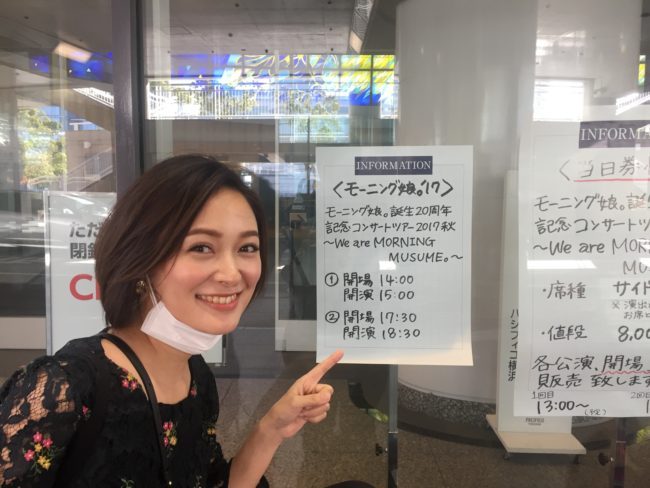 INFORMATION
〈モーニング娘。'17〉
モーニング娘。誕生20周年
記念コンサートツアー2017秋
~We are MORNING
MUSUME。~
① 開場 14:00
開演 15:00
② 開場 17:30
開演 18:30
INFORMATION
〈当日券
モーニング娘。誕生
記念コンサートツア
~We are MOR
MU
・席種 サイド
※演出
お席
・値段 8,00
各公演、開場
販売致します
1回目
13:00~
(予定)
2回
パシフィコ横浜
ただ
閉鎖